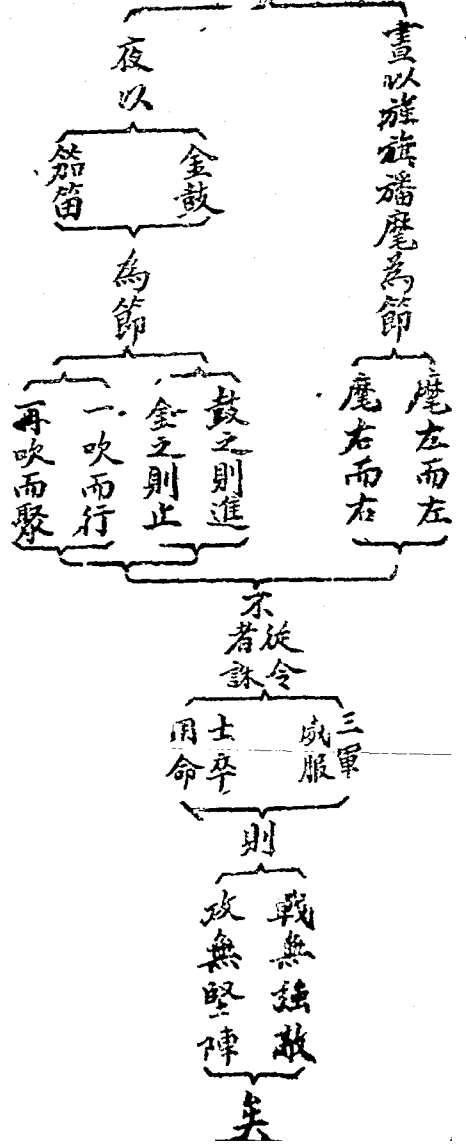 晝以旌旗旛麾為節
麾左而左
麾右而右
夜以
金鼓
笳笛
為節
鼓之則進
金之則止
一吹而行
再吹而聚
不
從令
者誅
三軍
威服
士卒
用命
則
戰無強敵
攻無堅陣
矣